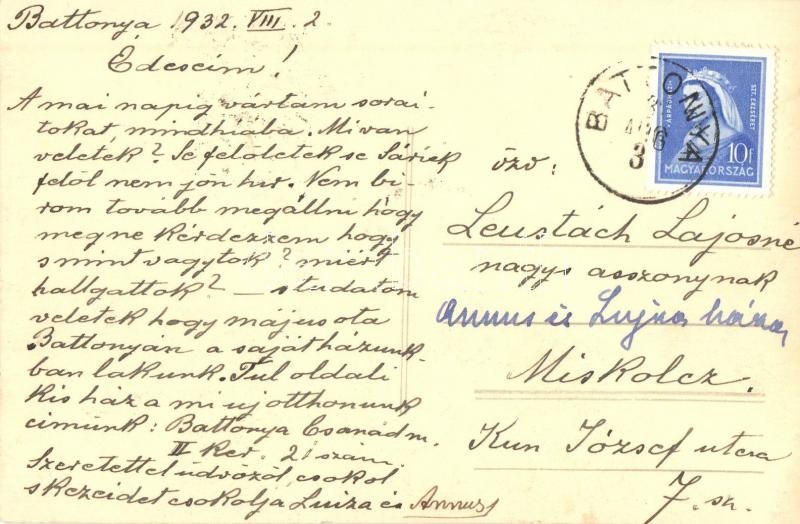 Battonya 1932. VIII. 2.
Édeseim!
A mai napig vártam sorai-
tokat mindhiába. Mi van
veletek? Se felőletek se Sáriék
felől nem jön hír. Nem bí-
rom tovább megállni hogy
meg ne kérdezzem hogy
s mint vagytok? miért
hallgattok? – s tudatom
veletek hogy május óta
Battonyán a saját házunk-
ban lakunk. Túl oldali
kis ház a mi uj otthonunk
címünk: Battonya Csanád m.
II ker. 21 szám
Szeretettel üdvözöl, csókol
s kezeidet csókolja Luiza és Annus
BATTONYA
AUG
3
ÁRPÁDHÁZI
SZT. ERZSÉBET
10f
MAGYARORSZÁG
özv:
Leustách Lajosné
nagys asszonynak
Annus és Lujza
Miskolcz.
Kun József utca
7. sz.